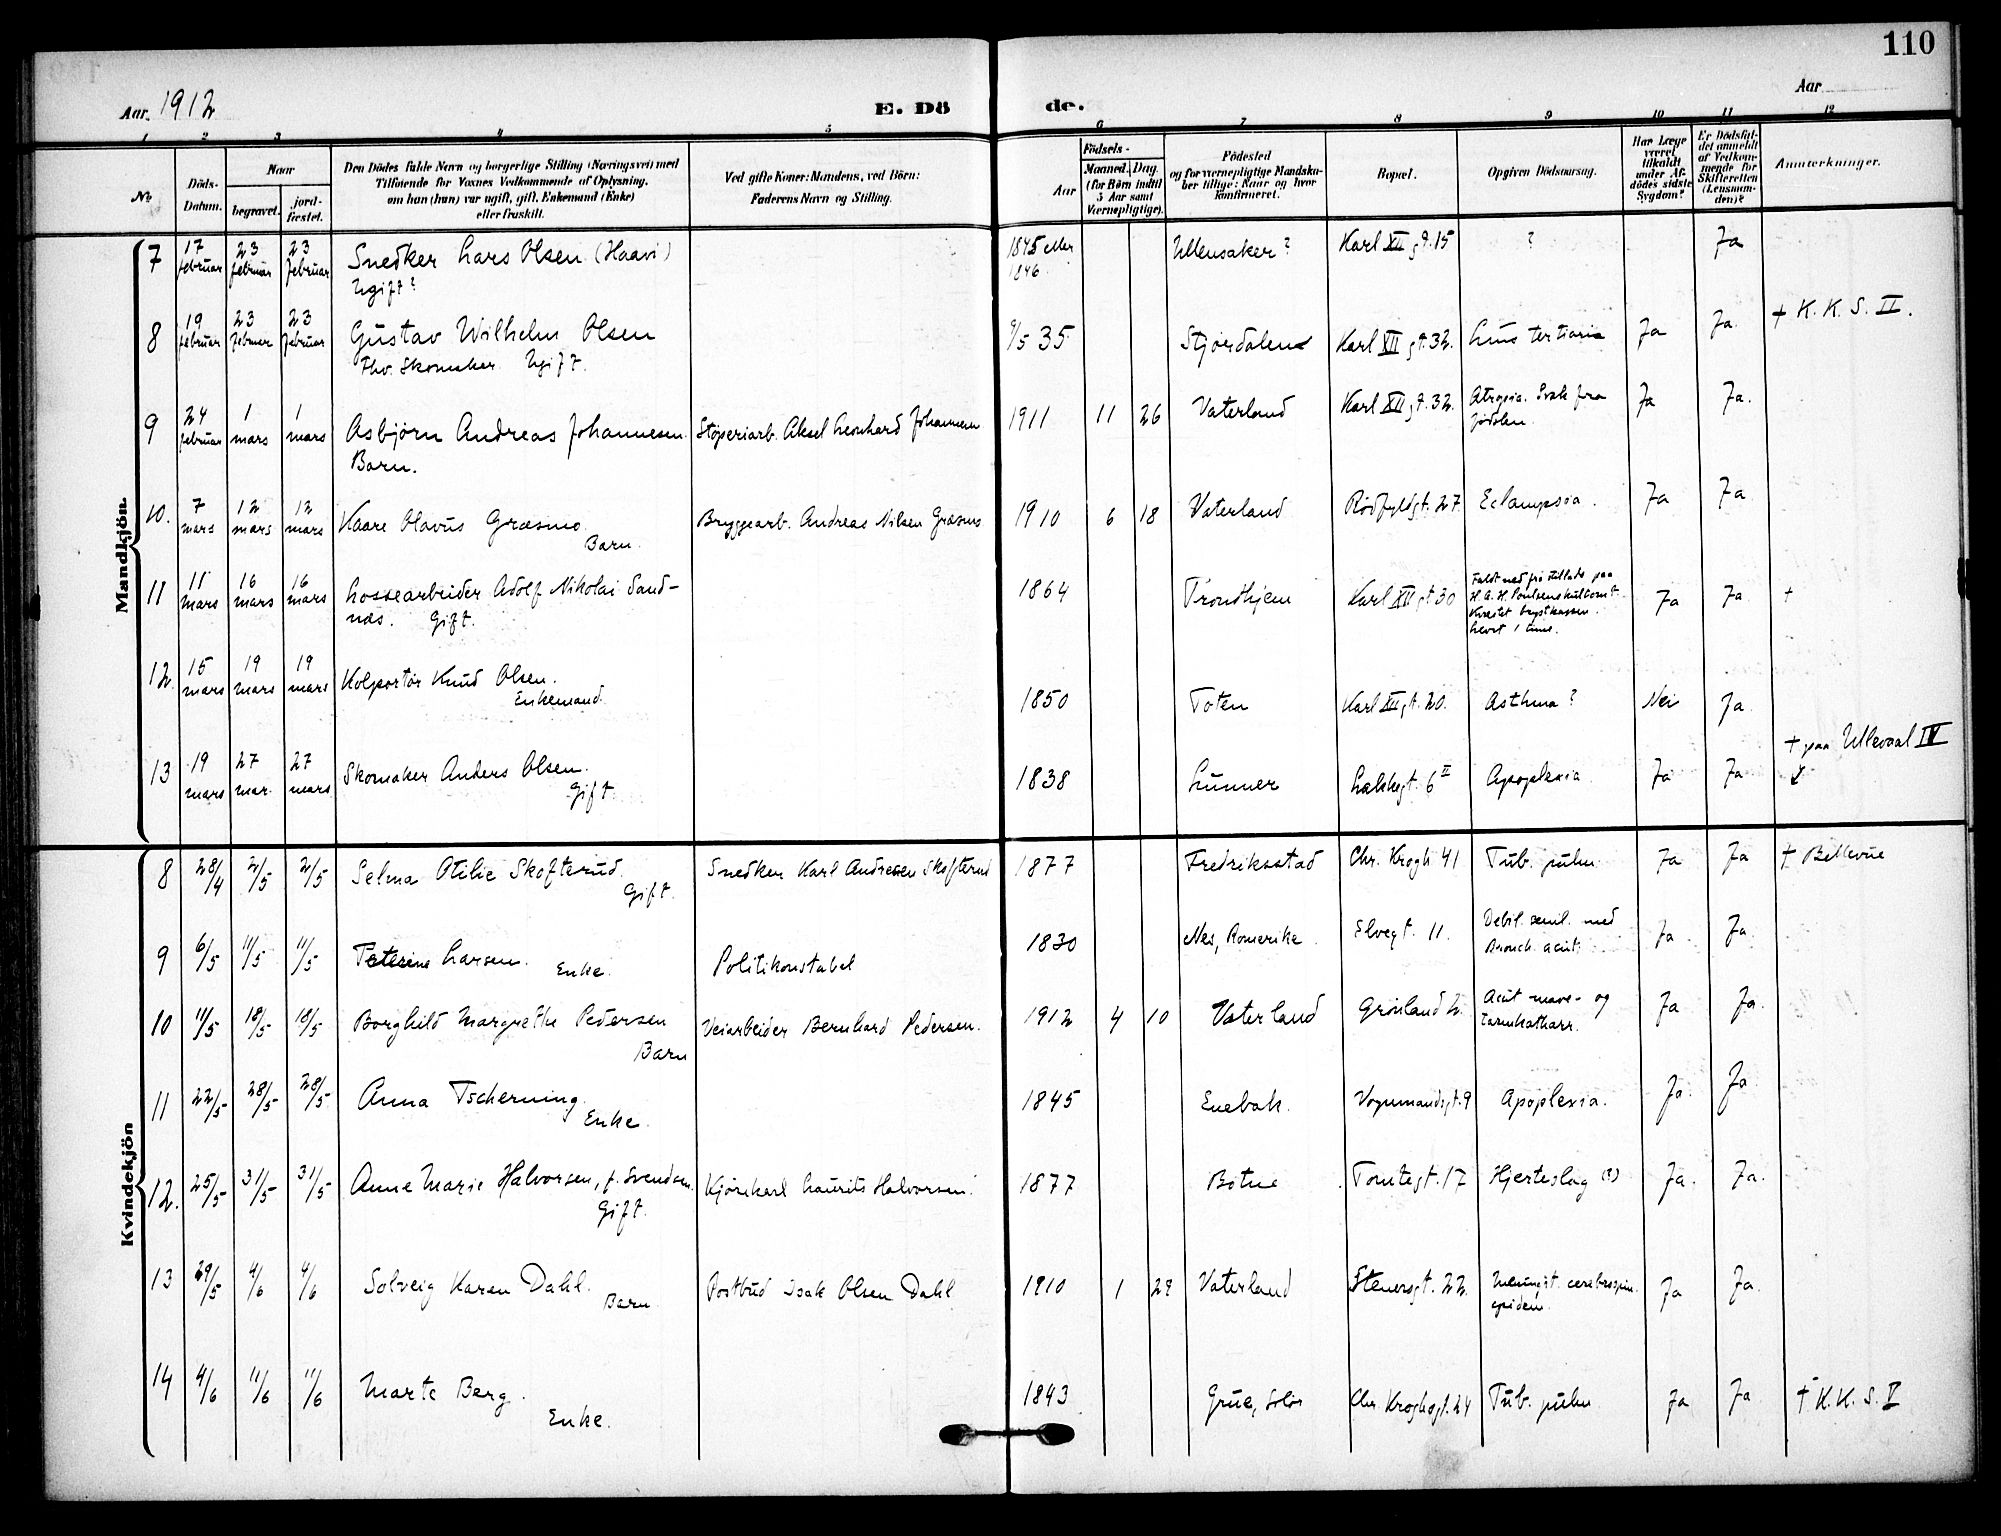 110
Aar 1912
E. Dö
de.
Aar
1 2 3 4 5 6 7 8 9 10 11 12
No.
Döds-Datum.
Naar
begravet.
jord-fæstet.
Den Dödes fulde Navn og borgerlige Stilling (Næringsvei) med
Tilföiende for Voxnes Vedkommende af Oplysning,
om han (hun) var ugift, gift, Enkemand (Enke)
eller fraskilt.
Ved gifte Koner: Mandens, ved Börn:
Faderens Navn og Stilling.
Födsels-
Aar
Maaned. Dag.
(for Börn indtil
5 Aar samt
Værnepligtige).
Födested
og for værnepligtige Mandska-
ber tillige: Naar og hvor
konfirmeret.
Bopæl.
Opgiven Dödsaarsag.
Har Læge
været
tilkaldt
under Af-
dödes sidste
Sygdom?
Er Dödsfal-
det anmeldt
af Vedkom-
mende for
Skifteretten
(Lensman-
den)?
Anmærkninger.
Mandkjön.
7 17 februar 23 februar 23 februar Snedker Lars Olsen (Haavi) 1845 eller Ullensaker? Karl XII gt. 15 ? Ja
Ugift? 1846
8 19 februar 23 februar 23 februar Gustav Wilhelm Olsen 9/5 35 Stjørdalen Karl XII gt. 32. Lues tertiaria Ja Ja. † K. K. S. II.
Fhv. Skomaker. Ugift.
9 24 februar 1 mars 1 mars Asbjörn Andreas Johannesen Støperiarb. Aksel Leonhard Johannesen 1911 11 26 Vaterland Karl XII gt. 32. Atropia. Svak fra Ja Ja.
Barn. fødslen.
10. 7 mars 12 mars 12 mars Kaare Olavus Græsmo. Bryggearb. Andreas Nilsen Græsmo 1910 6 18 Vaterland Rødfyldgt. 27. Eclampsia. Ja Ja.
Barn.
11 11 mars 16 mars 16 mars Lossearbeider Adolf Nikolai Sand- 1864 Trondhjem Karl XII gt 30 Faldt ned fra stillads paa Ja Ja. †
næs. Gift. H. A. H. Poulsens kultomt.
Kvæstet brystkassen.
Levet 1 time.
12. 15 mars 19 mars 19 mars Kolportør Knud Olsen. 1850 Toten Karl XII gt. 20. Asthma? Nei Ja.
Enkemand.
13 19 mars 27 mar. 27 mars Skomaker Anders Olsen. 1838 Lunner Lakkegt. 6 II Apoplexia Ja Ja † paa Ullevaal IV
Gift.
Kvindekjön
8 28/4 2/5 2/5 Selma Otilie Skofterud. Snedker Karl Andresen Skofterud 1877 Fredriksstad Chr. Krogh 41 Tub. pulm. Ja Ja † Bellevue
Gift.
9 6/5 11/5 11/5 Peterine Larsen. Enke. Politikonstabel 1830 Nes, Romerike Elvegt. 11. Debil. senil. med Ja. Ja.
Bronch. acut.
10 11/5 18/5 18/5 Borghild Margrethe Pedersen Veiarbeider Bernhard Pedersen. 1912 4 10 Vaterland Grønland 2. Acut mave- og Ja Ja.
Barn tarmkatharr.
11 22/5 28/5 28/5 Anna Tscherning. 1845 Enebak. Vognmandsgt. 9 Apoplexia. Ja. Ja.
Enke.
12. 25/5 31/5 31/5 Anne Marie Halvorsen, f. Svendsen. Kjørekarl Laurits Halvorsen. 1877 Botne Tomtegt. 17 Hjerteslag (?) Ja. Ja.
Gift.
13 29/5 4/6 4/6 Solveig Karen Dahl. Postbud Isak Olsen Dahl. 1910 1 29 Vaterland Stenersgt. 22. Meningit. cerebrospin. Ja Ja.
Barn. epidem.
14 4/6 11/6 11/6 Marte Berg. 1843 Grue, Solør Chr. Kroghsgt. 24 Tub. pulm. Ja Ja † K. K. S. V
Enke.